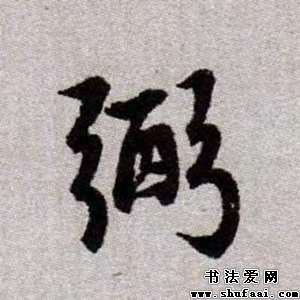 弼
书法爱网
www.shufaai.com